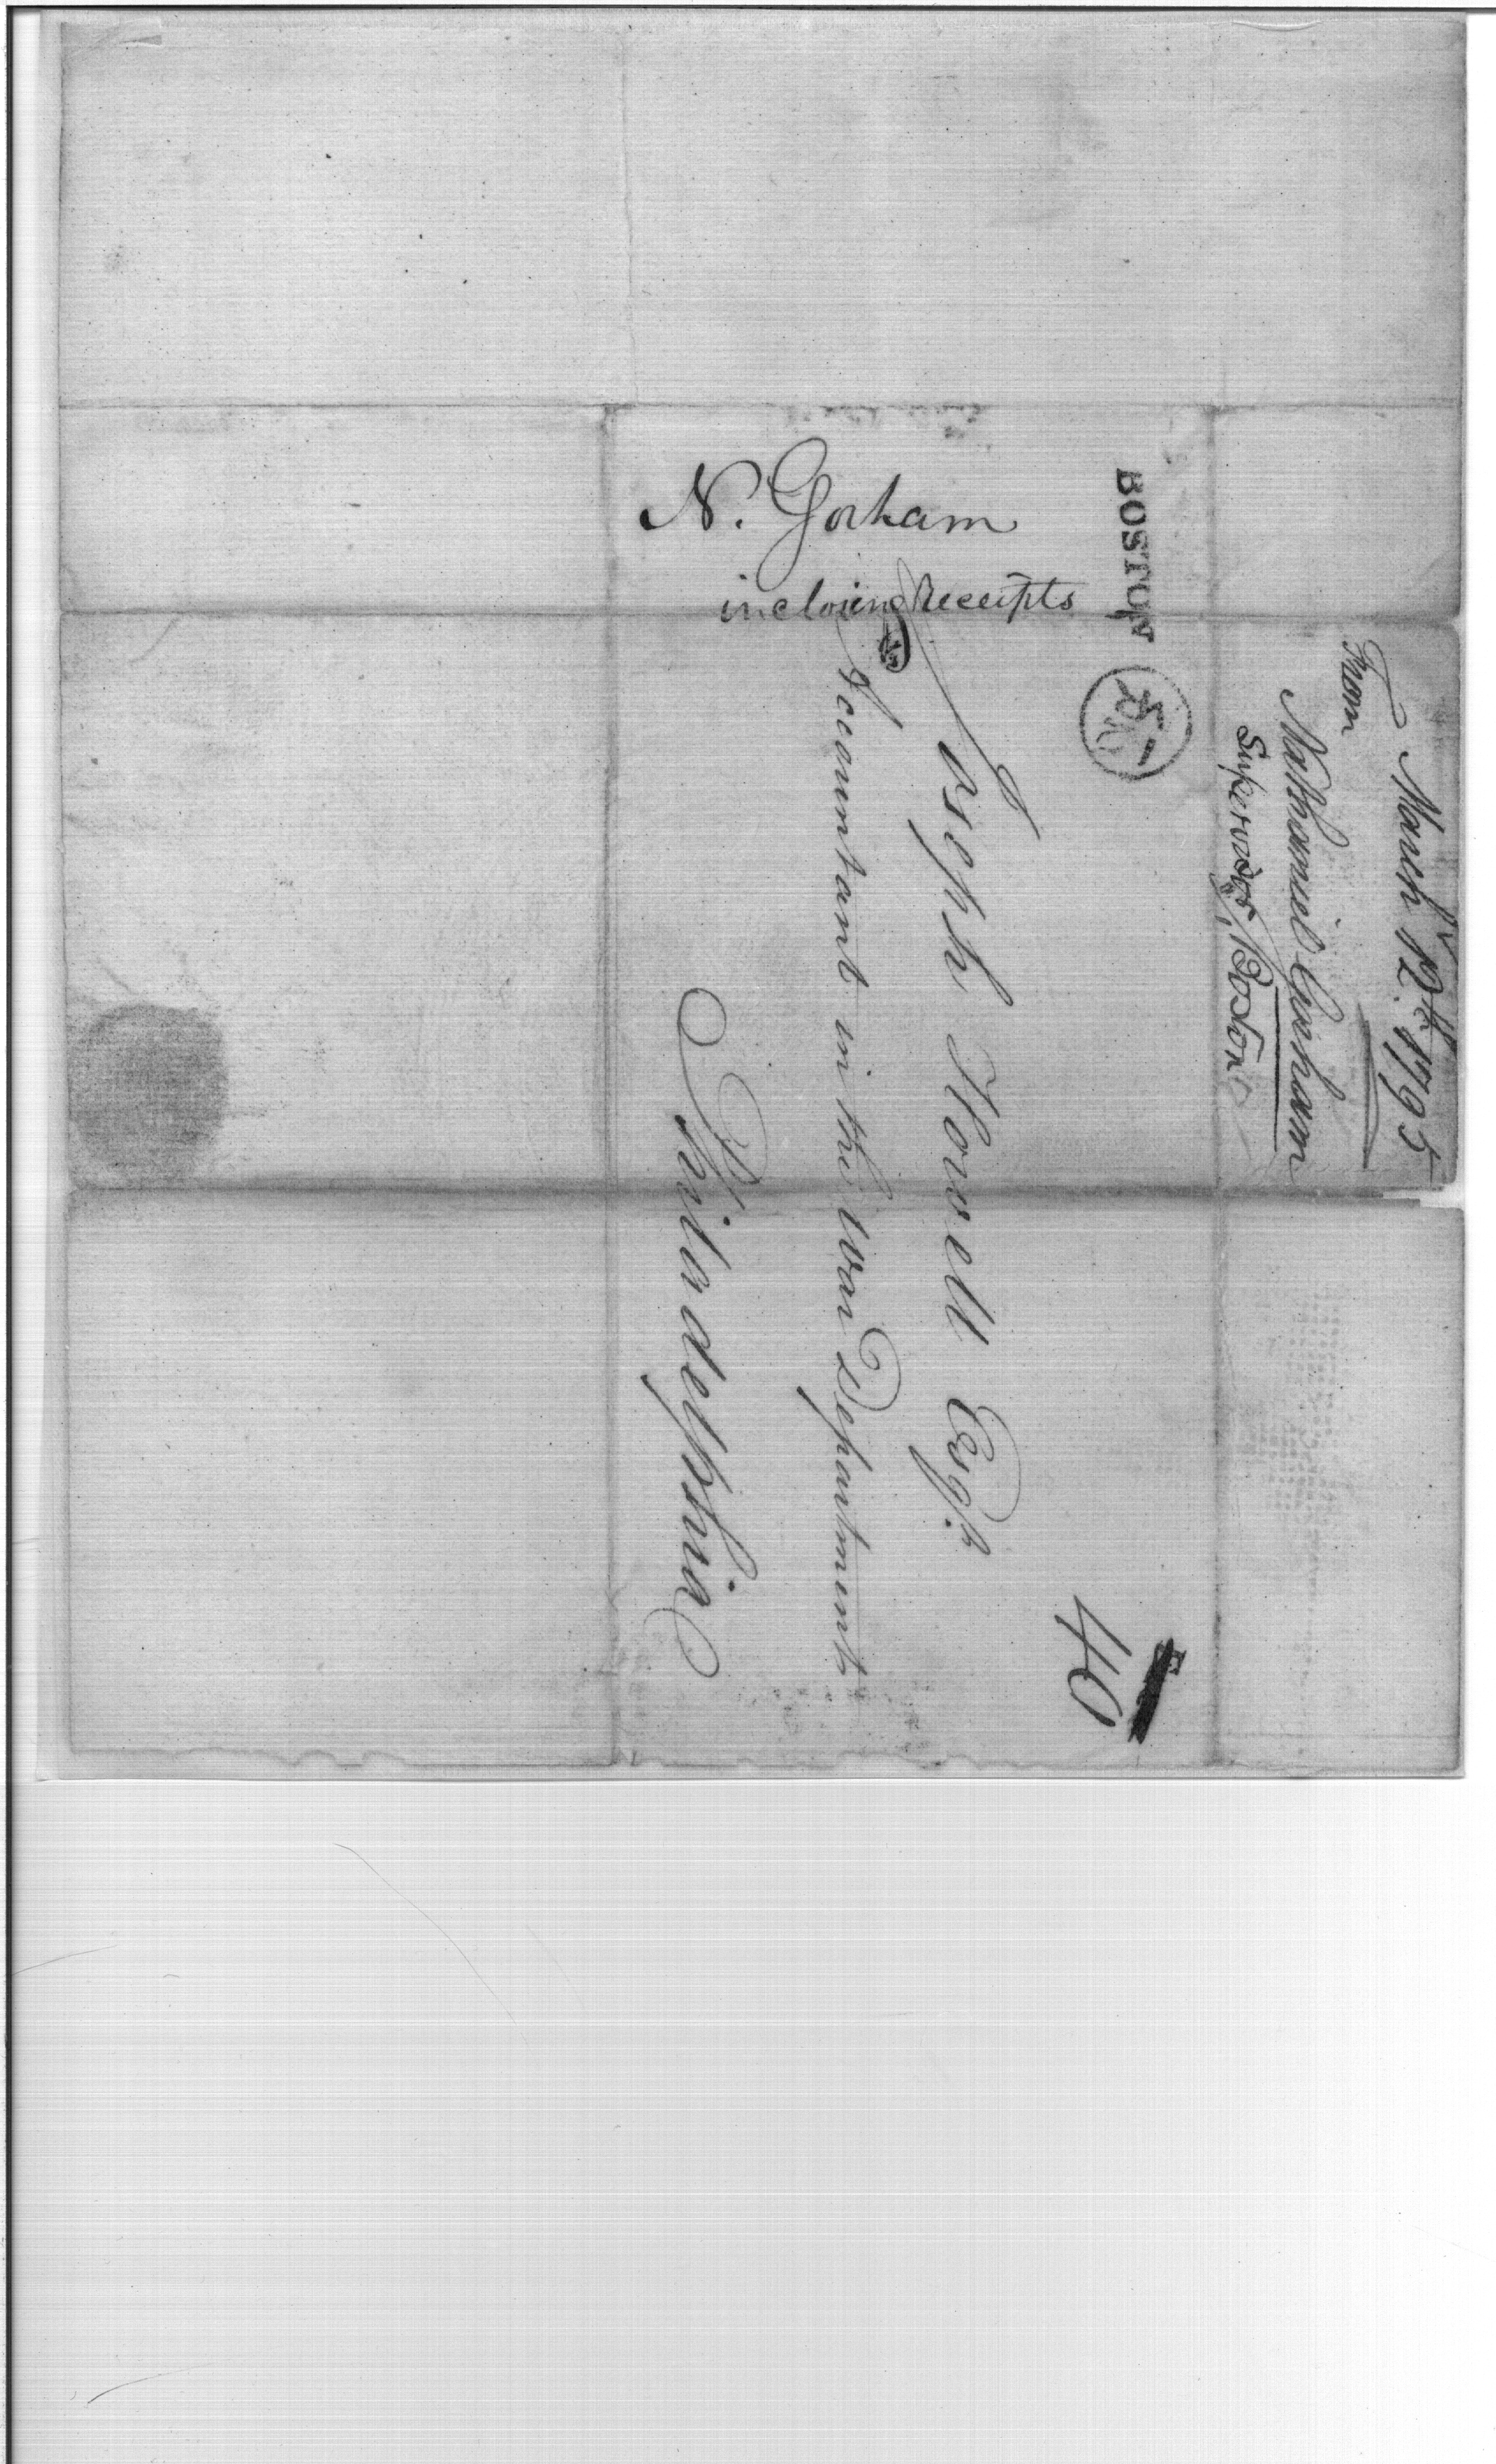 March 12th 1795
From
Nathaniel Gorham
Supervisor, Boston
BOSTON
40
Joseph Howell Esqr.
Accountant in the War Department
Philadelphia
N. Gorham
inclosing Receipts